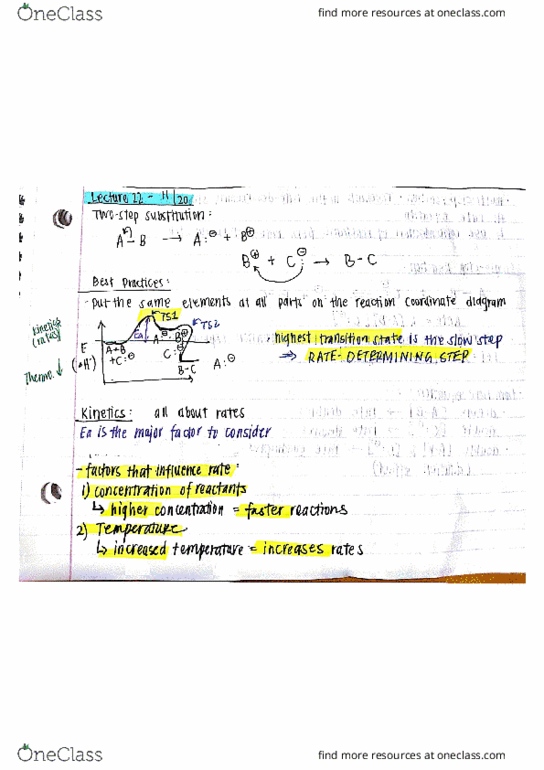 OneClass
find more resources at oneclass.com
Lecture 22 - 11/20
Two-step substitution:
A-B → A:⊖ + B⊕
B⊕ + C:⊖ → B-C
Best Practices:
- put the same elements at all parts on the reaction coordinate diagram
TS1
TS2
kinetics
(rates)
Ea
E
(ΔH)
Thermo.
A-B
+C:⊖
A:⊖ B⊕
C:⊖
B-C
A:⊖
- highest transition state is the slow step
⇒ RATE-DETERMINING STEP
Kinetics: all about rates
Ea is the major factor to consider
- factors that influence rate:
1) concentration of reactants
↳ higher concentration = faster reactions
2) Temperature
↳ increased temperature = increases rates
OneClass
find more resources at oneclass.com